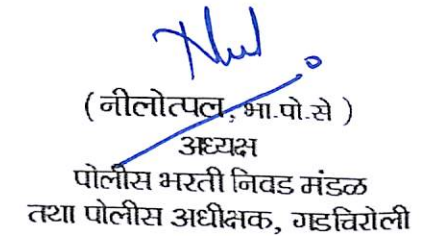 (नीलोत्पल, भा.पो.से )
अध्यक्ष
पोलीस भरती निवड मंडळ
तथा पोलीस अधीक्षक, गडचिरोली